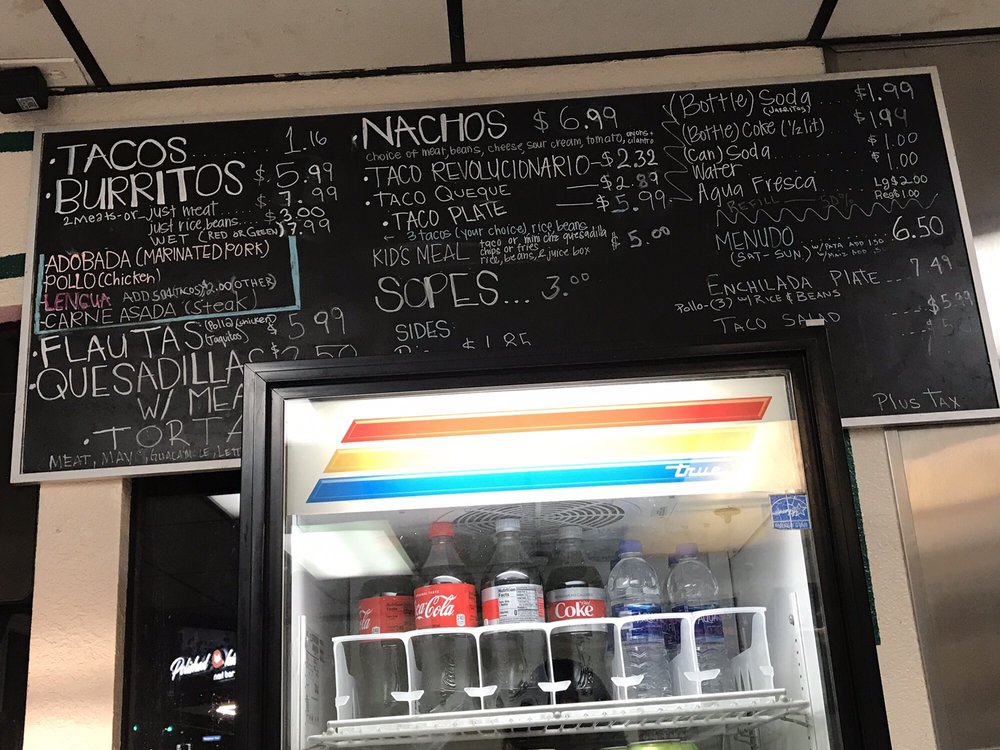 ·TACOS...... 1.16
·BURRITOS $.5.99
2 MEATS-or-just meat.... $7.99
just rice, beans.... $3.00
WET (RED or GREEN) $7.99
ADOBADA (MARINATED PORK)
POLLO (Chicken)
-LENGUA ADD .50¢(TACOS) $2.00 (OTHER)
-CARNE ASADA (Steak)
·FLAUTAS (Pollo) (chicken) (Taquitos) $5.99
·QUESADILLAS $2.50
W/ MEA
·TORTA
MEAT, MAYO, GUACAMOLE, LETT
·NACHOS $6.99
choice of meat, beans, cheese, sour cream, tomato, onions + cilantro
·TACO REVOLUCIONARIO-$2.32
·TACO QUEQUE — $2.89
·TACO PLATE — $5.99
← 3 tacos (your choice), rice, beans
KID'S MEAL taco or mini chz quesadilla $5.00
chips or fries
rice, beans, & juice box
SOPES... 3.00
SIDES
$1.85
(Bottle) Soda (JARRITOS).... $1.99
(Bottle) Coke (½ lit) $1.94
(can) Soda $1.00
Water $1.00
Agua Fresca Lg$2.00
Reg$1.00
REFILL 50%
MENUDO ... 6.50
(SAT-SUN) w/PATA ADD 1.50
w/Maiz ADD .50
ENCHILADA PLATE... 7.49
Pollo-(3) w/ RICE & BEANS
TACO SALAD ---- $5.99
PLUS TAX
true
Coca-Cola
Nutrition Facts
Coke
AQUA
Polished
nail bar